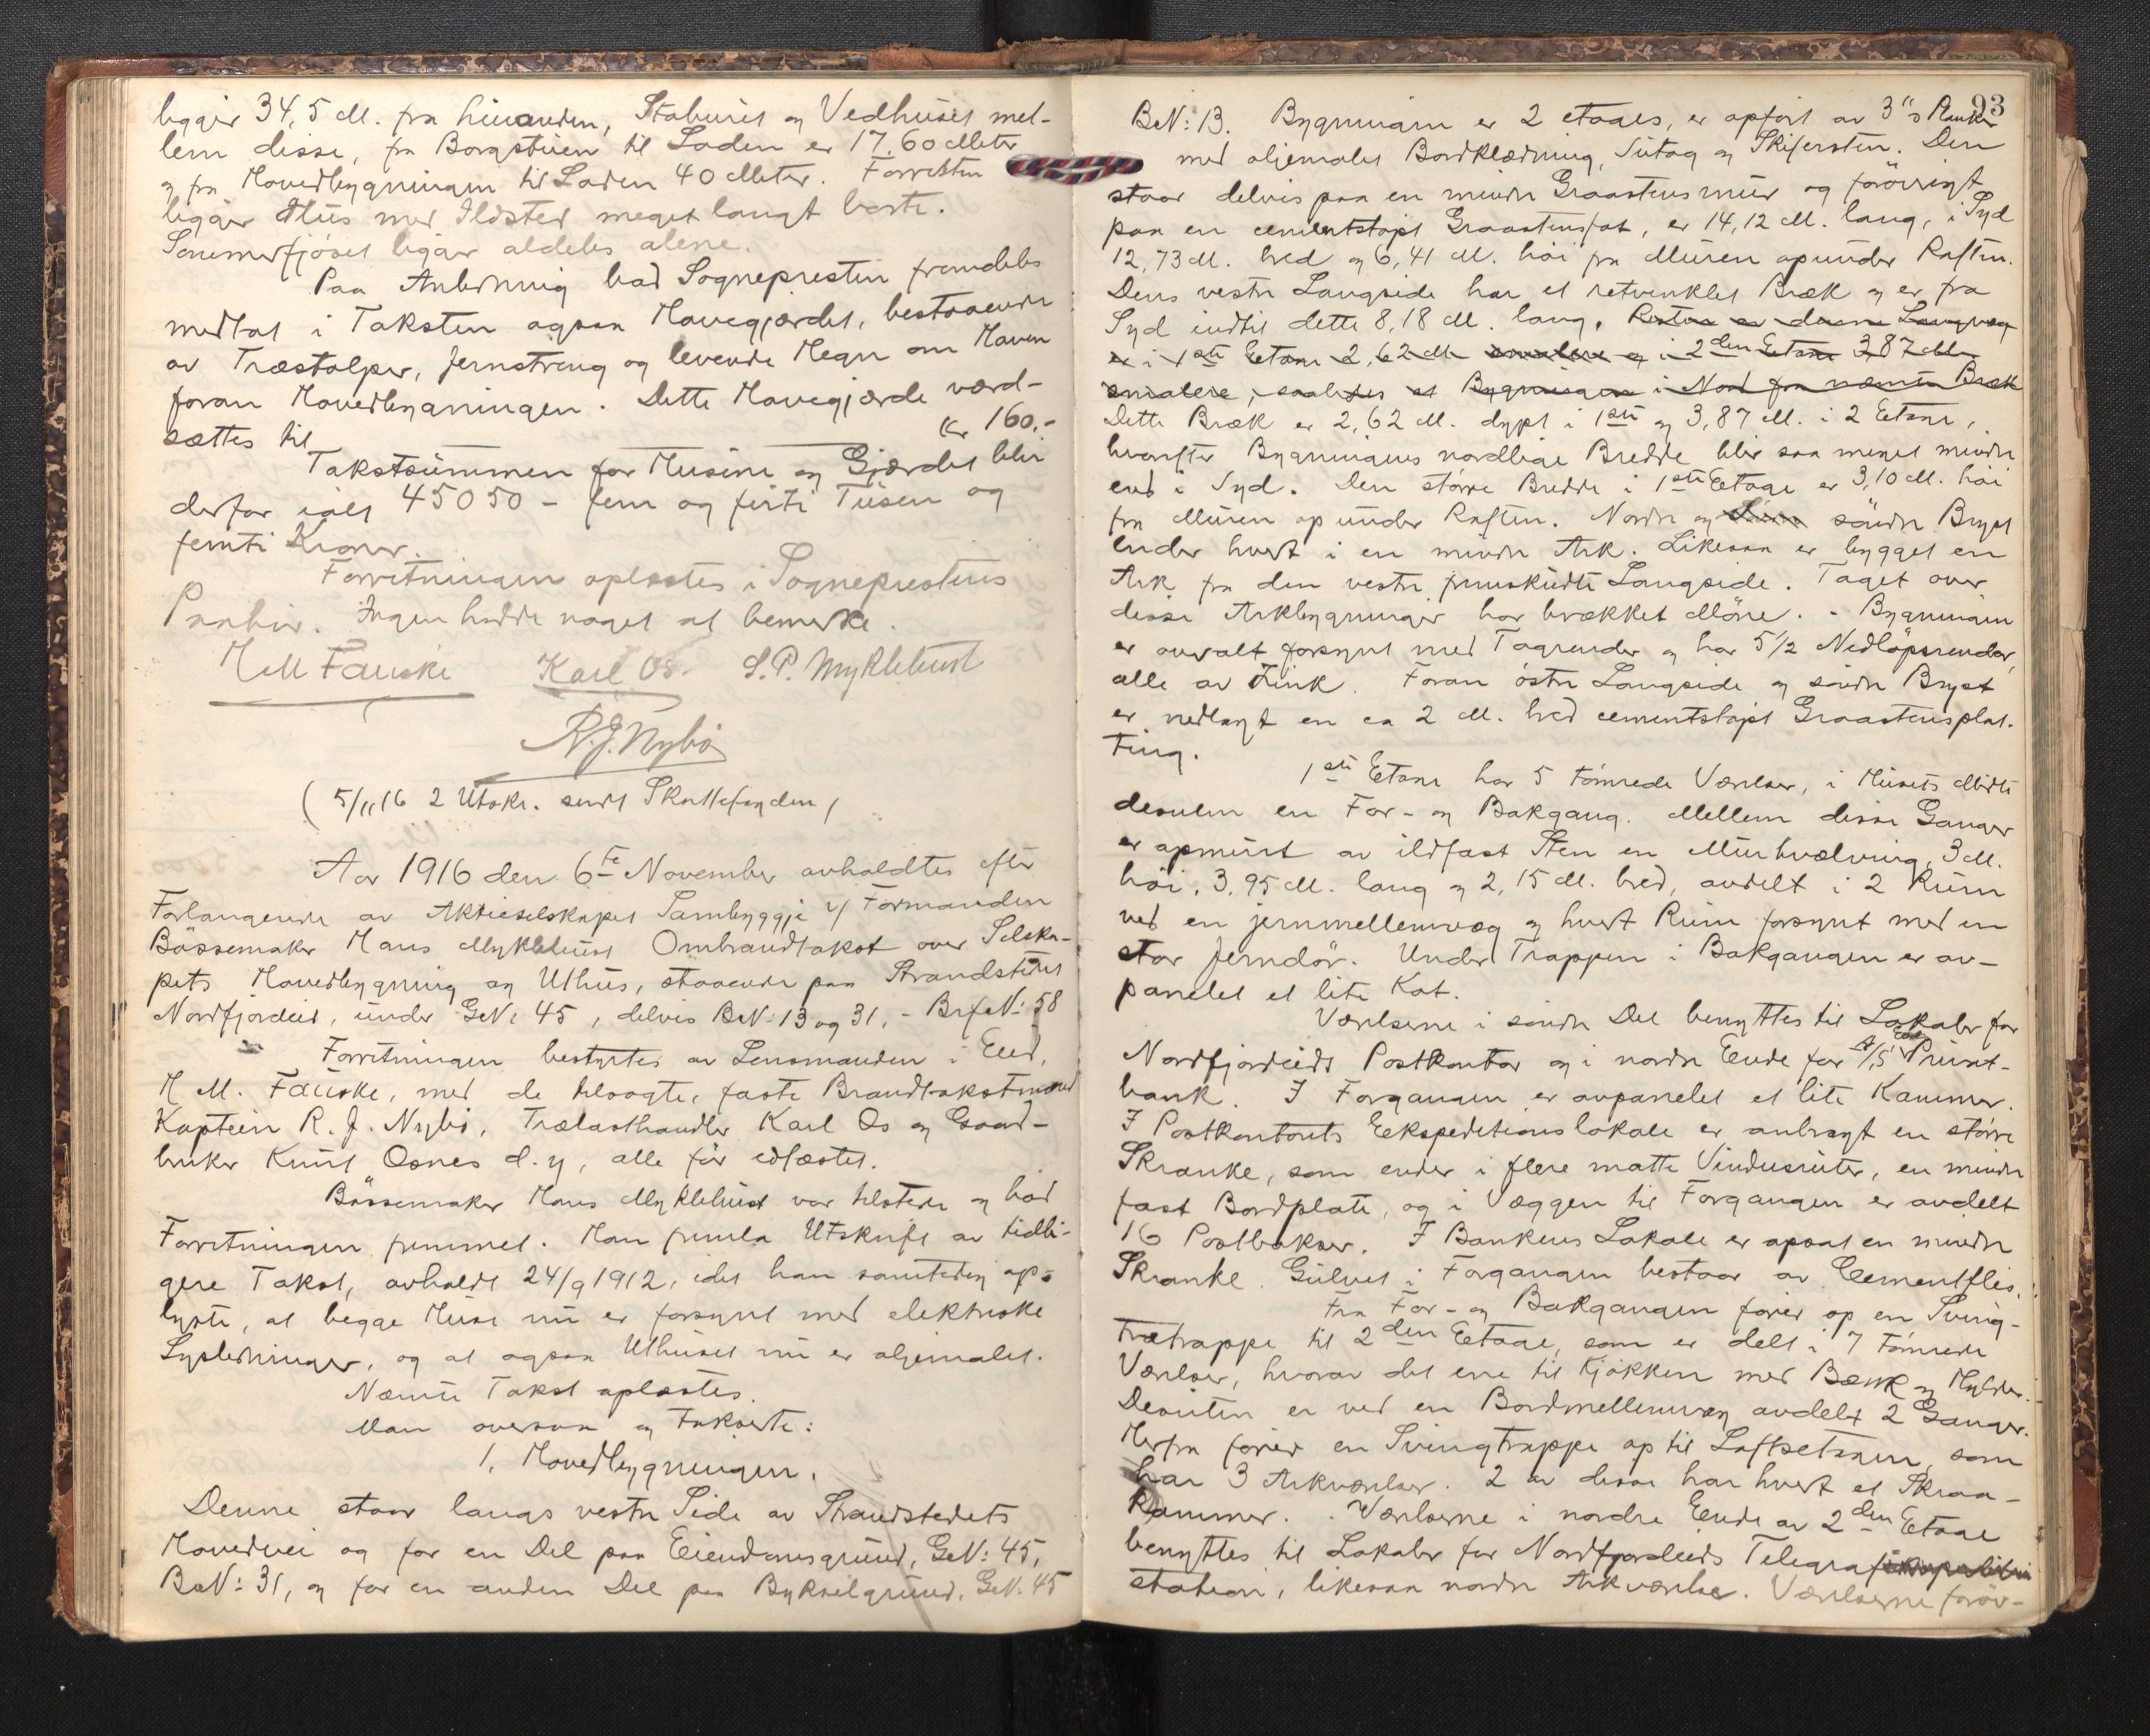 ligger 34,5 M. fra hinanden, Staburet og Vedhuset mel-
lem disse, fra Borgstuen til Laden er 17,60 Meter
og fra Hovedbygningen til Laden 40 Meter. Forresten
ligger Hus med Ildsted meget langt borte.
Sommerfjøset ligger aldeles alene.
Paa Anledning bad Sognepresten fremdeles
medtat i Taksten ogsaa Havegjærdet, bestaaende
av Træstolper, Jernstreng og levende Hegn om Haven
foran Hovedbygningen. Dette Havegjærde værd-
sættes til Kr 160.-
Takstsummen for Husene og Gjærdet blir
derfor ialt 45050 - fem og firti Tusen og
femti Kroner.
Forretningen oplæstes i Sogneprestens
Paahør. Ingen hadde noget at bemerke.
H M Fauske Karl Os. S. P. Myklebust
R. J. Nybö
( 5/11 16 2 Utskr. sendt Skattefogden )
Aar 1916 den 6te November avholdtes efter
Forlangende av Aktieselskapet Sambyggje v/ Formanden
Bössemaker Hans Myklebust Ombrandtakst over Selska-
pets Hovedbygning og Uthus, staaende paa Strandstedet
Nordfjordeid, under GN: 45, delvis BN: 13 og 31, - BrfN: 58
Forretningen bestyrtes av Lensmanden i Eid,
H M. Fauske, med de tilsagte, faste Brandtakstmænd
Kaptein R. J. Nybö, Trælasthandler Karl Os og Gaard-
bruker Knut Osnes d. y, alle för edfæstet.
Bössemaker Hans Myklebust var tilstede og bad
Forretningen fremmet. Han fremla Utskrift av tidli-
gere Takst, avholdt 24/9 1912, idet han samtidig op-
lyste, at begge Huse nu er forsynt med elektriske
Lysledninger, og at ogsaa Uthuset nu er oljemalet.
Nævnte Takst oplæstes.
Man overså og takserte:
1. Hovedbygningen.
Denne staar langs vestre Side av Strandstedets
Hovedvei og for en Del paa Eiendomsgrund, GN: 45,
BN: 31, og for en anden Del paa Bykselgrund, GN. 45
93
BN: 13. Bygningen er 2 etages, er opfört av 3" s Planker
med oljemalet Bordklædning, Sutag og Skifersten. Den
staar delvis paa en mindre Graastensmur og forövrigt
paa en cementstöpt Graastensfot, er 14,12 M. lang, i Syd
12,73 M. bred og 6,41 M. höi fra Muren opunder Raften.
Dens vestre Langside har et retvinklet Bræk og er fra
Syd indtil dette 8,18 M. lang. Resten av denne Langvæg
er i 1ste Etage 2,62 M. smalere og i 2den Etage 3,87 M.
smalere, saaledes at Bygningen i Nord fra nævnte Bræk
Dette Bræk er 2,62 M. dypt i 1ste og 3,87 M. i 2 Etage,
hvorefter Bygningens nordlige Bredde blir saa meget mindre
end i Syd. Den större Bredde i 1ste Etage er 3,10 M. höi
fra Muren op under Raften. Nordre og söndre Bryst
ender hvert i en mindre Ark. Likesaa er bygget en
Ark fra den vestre fremskudte Langside. Taget over
disse Arkbygninger har brækket Möne. - Bygningen
er overalt forsynt med Tagrender og har 5 1/2 Nedlöpsrender,
alle av Zink. Foran östre Langside og söndre Bryst
er nedlagt en ca 2 M. bred cementstöpt Graastensplat-
ting.
1ste Etage har 5 tömrede Værelser, i Husets Midte
desuten en For- og Bakgang. Mellem disse Ganger
er opmurt av ildfast Sten en Murhvælving, 3 M.
höi, 3,95 M. lang og 2,15 M. bred, avdelt i 2 Rum
ved en jernmellemvæg og hvert Rum forsynt med en
stor Jerndör. Under Trappen i Bakgangen er av-
panelet et lite Kot.
Værelserne i söndre Del benyttes til Lokaler for
Nordfjordeids Postkontor og i nordre Ende for A/S Eids Privat-
bank. I Forgangen er avpanelet et lite Kammer.
I Postkontorets Ekspeditionslokale er anbragt en större
Skranke, som ender i flere matte Vindusruter, en mindre
fast Bordplate, og i Væggen til Forgangen er avdelt
16 Postbokser. I Bankens Lokale er opsat en mindre
Skranke. Gulvet i Forgangen bestaar av Cementflis.
Fra For- og Bakgangen förer op en Sving-
trætrappe til 2den Etage, som er delt i 7 tömrede
Værelser, hvorav det ene til Kjökken med Bænk og Hylder.
Desuten er ved en Bordmellemvæg avdelt 2 Ganger.
Herfra förer en Svingtrappe op til Loftsetagen, som
har 3 Arkværelser. 2 av disse har hvert et Skraa-
kammer. Værelserne i nordre Ende av 2den Etage
benyttes til Lokaler for Nordfjordeids Telegraf
station, likesaa nordre Arkværelse. Værelserne foröv-